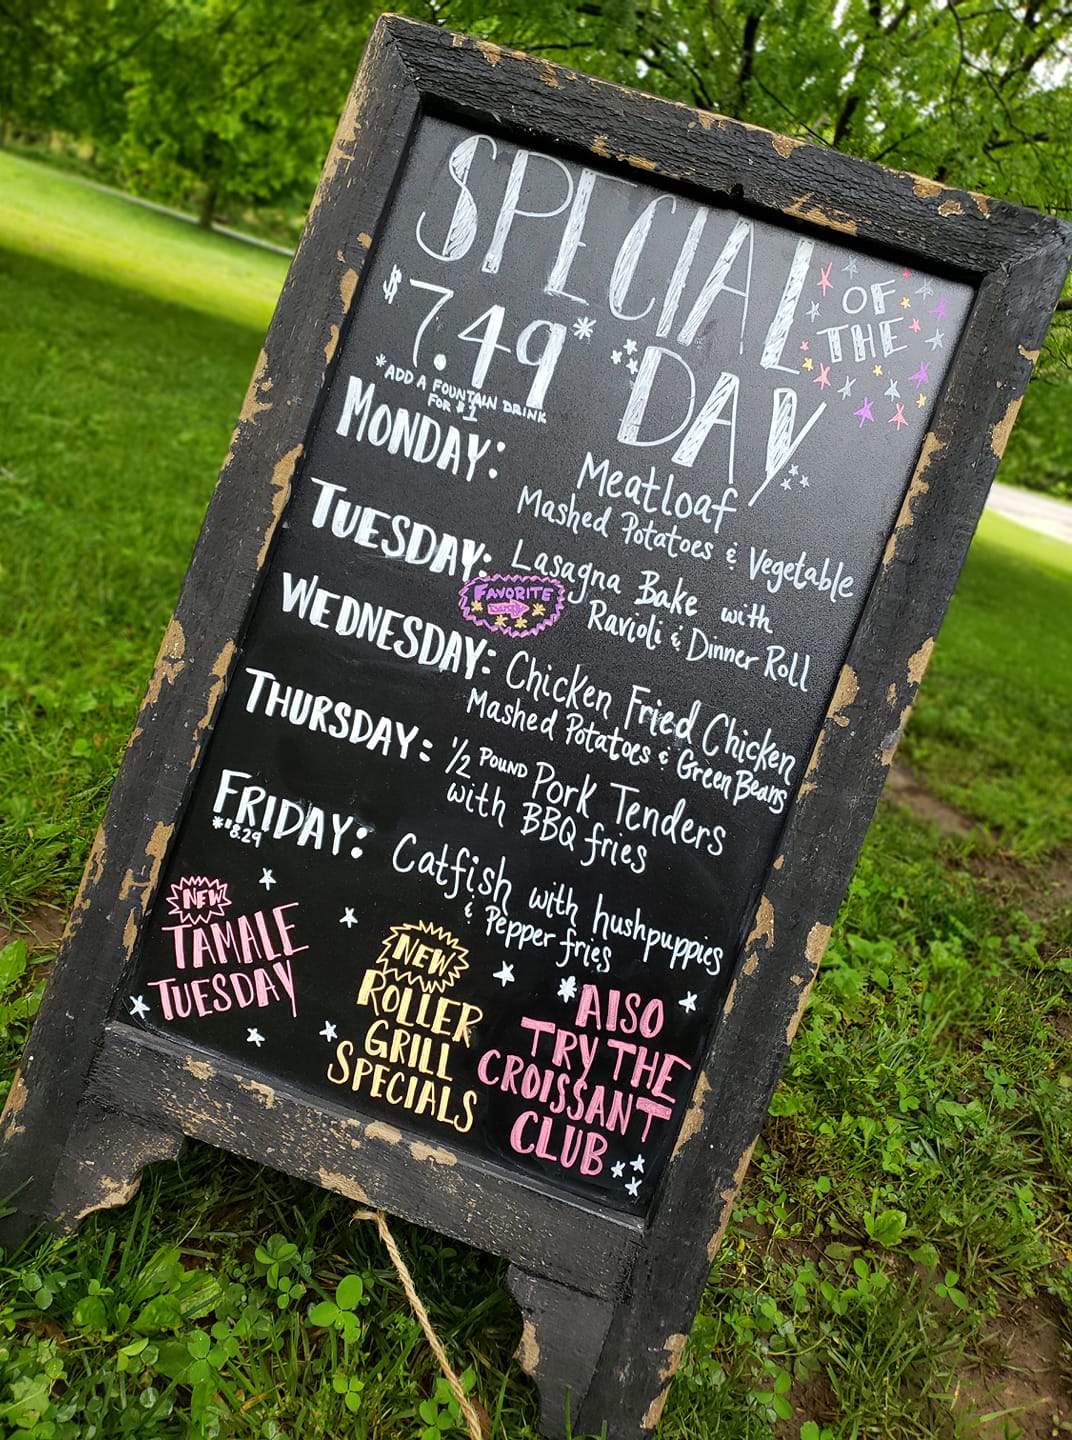 SPECIAL
OF
THE
DAY
$7.49*
*ADD A FOUNTAIN DRINK
FOR $1
MONDAY: Meatloaf
Mashed Potatoes & Vegetable
TUESDAY: Lasagna Bake with
Ravioli & Dinner Roll
FAVORITE
WEDNESDAY: Chicken Fried Chicken
Mashed Potatoes & Green Beans
THURSDAY: 1/2 POUND Pork Tenders
with BBQ fries
FRIDAY: Catfish with hushpuppies
*$8.29
& Pepper fries
NEW
TAMALE
TUESDAY
NEW
ROLLER
GRILL
SPECIALS
*ALSO
TRY THE
CROISSANT
CLUB